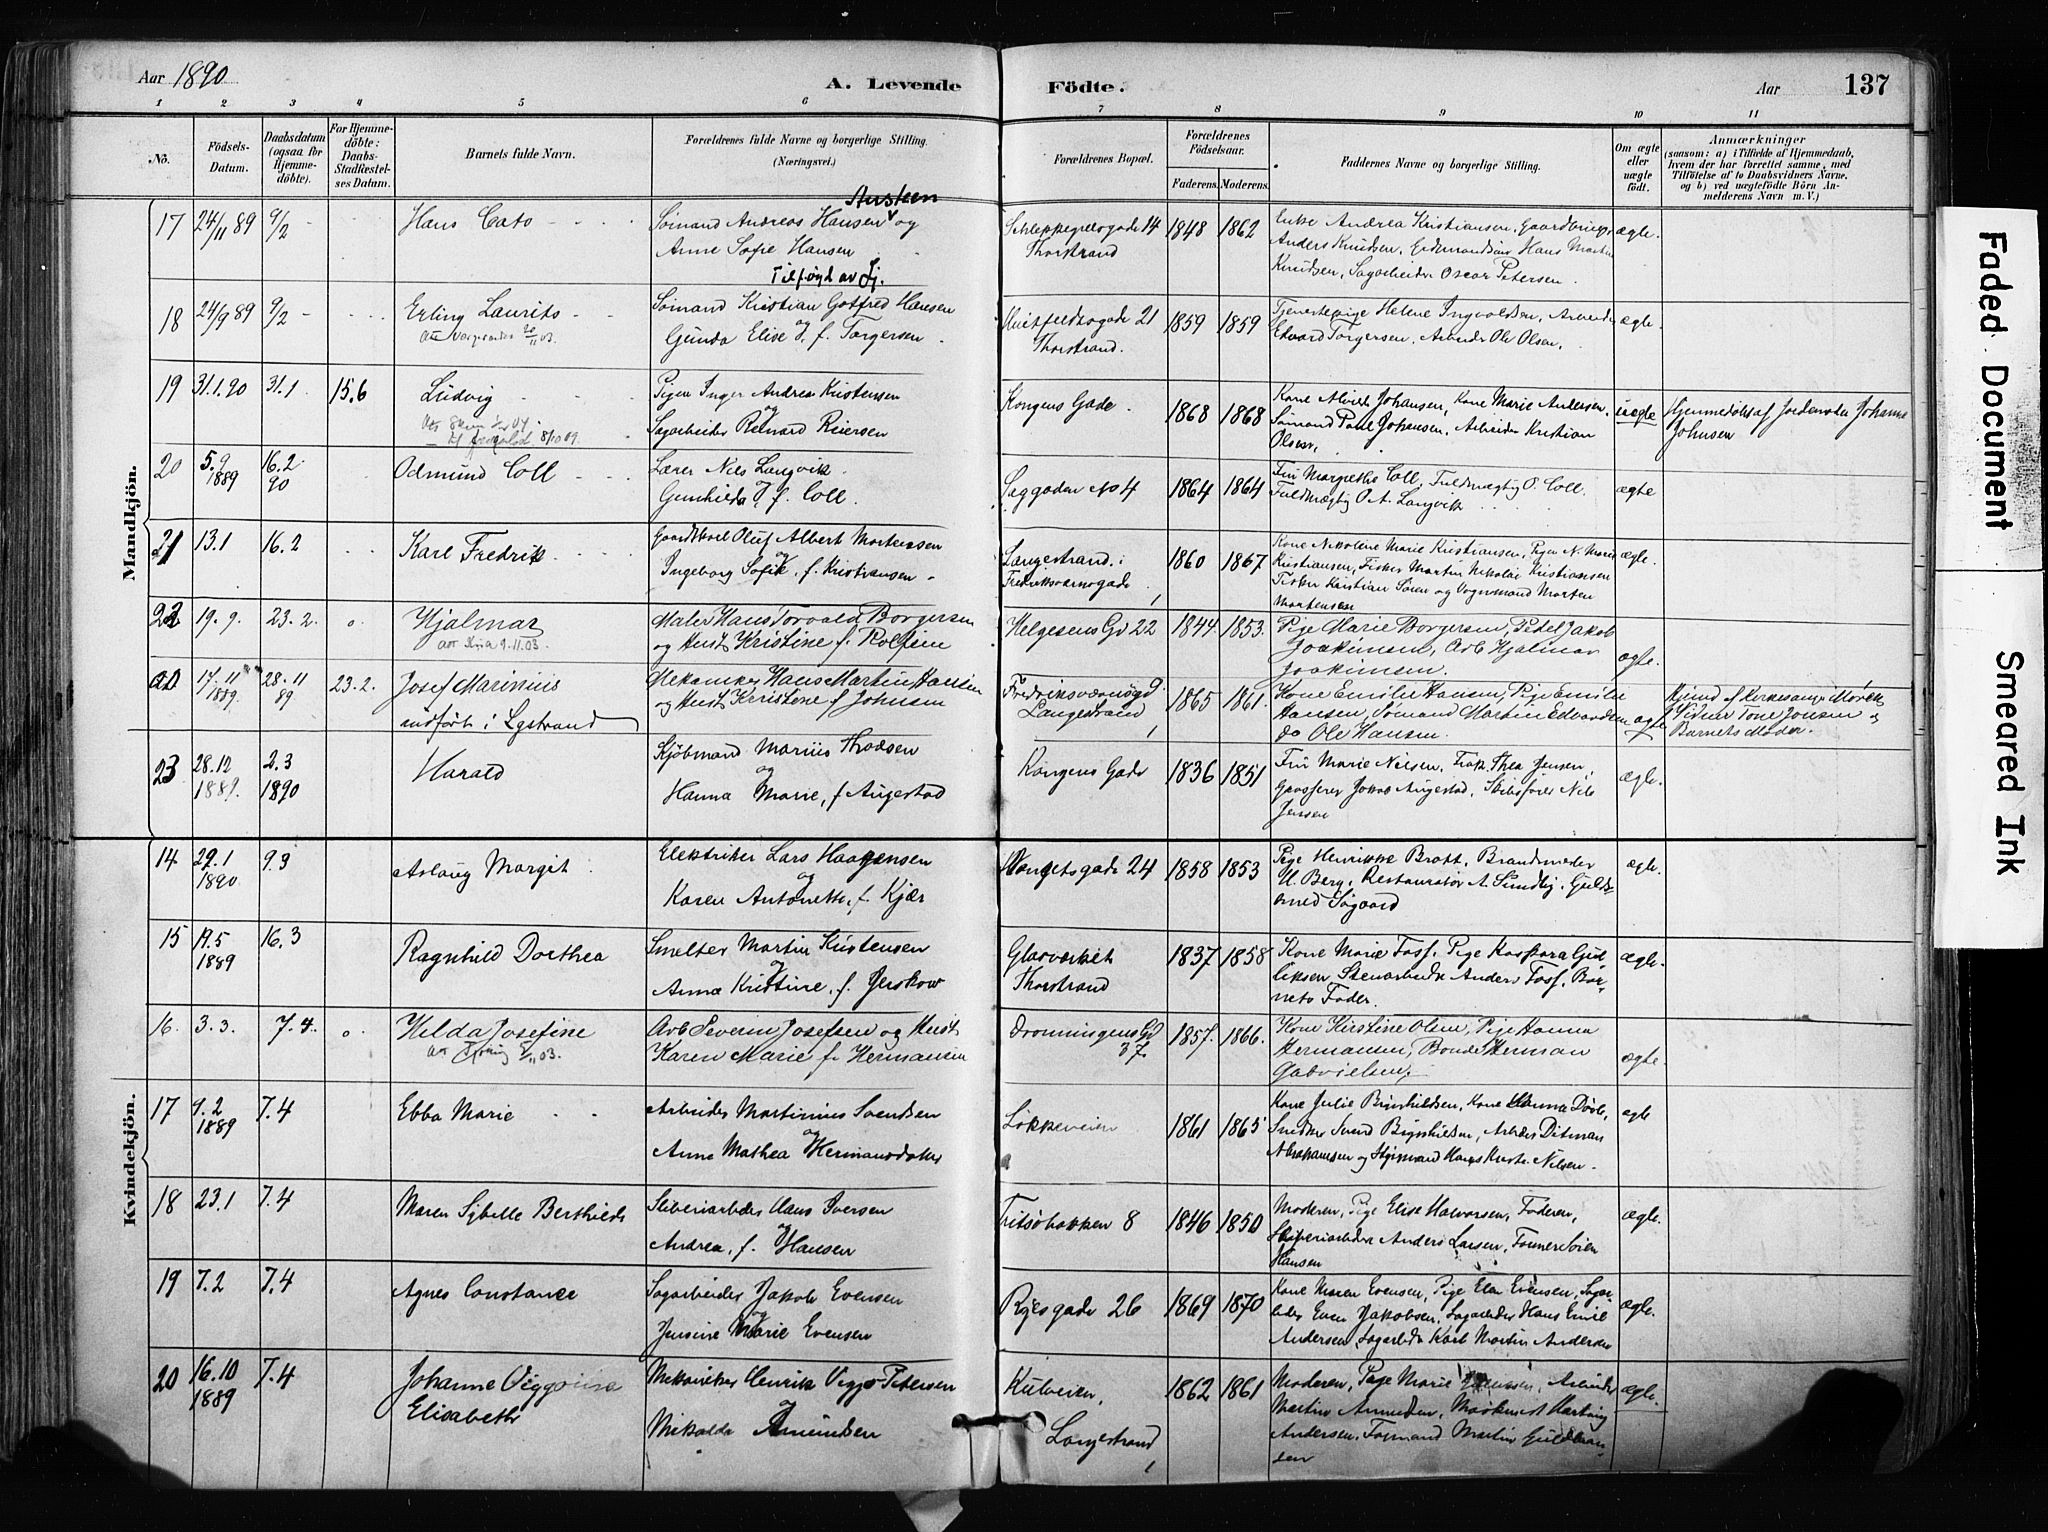 Aar 1890
A. Levende Födte.
Aar 137
1 2 3 4 5 6 7 8 9 10 11
No.
Födsels-
Datum.
Daabsdatum
(ogsaa for
Hjemme-
döbte).
For Hjemme-
döbte:
Daabs-
Stadfæstel-
ses Datum.
Barnets fulde Navn.
Forældrenes fulde Navne og borgerlige Stilling.
(Næringsvei.)
Forældrenes Bopæl.
Forældrenes
Födselsaar.
Faderens. Moderens.
Faddernes Navne og borgerlige Stilling.
Om ægte
eller
uægte
födt.
Anmærkninger
(saasom: a) i Tilfælde af Hjemmedaab,
hvem der har forrettet samme, med
Tilföielse af to Daabsvidners Navne,
og b) ved uægtefödte Börn An-
melderens Navn m. V.)
Mandkjön.
Austeen
17 24/11 89 9/2 - - Hans Cato Sömand Andreas Hansen og
Anne Sofie Hansen
Tilföyd av Sj.
Thorstrand 1848 1862
Enke Andrea Kristiansen, Gaardbruger
Anders Knudsen, Hans Martin
Knudsen, Sagarbeider Oscar Petersen. ægte.
18 24/9 89 9/2 - Erling Laurits
Sömand Kristian Gotfred Hansen
og
Gunda Elise f. Torgersen
Huitfeldtsgade 21
Thorstrand. 1859 1859
Tjenestepige Helene Ingvoldsen, Arbeider
Edvard Torgersen, Arbeider Ole Olsen. ægte
19 31.1.90 31.1 15.6 Ludvig
Pigen Inger Andrea Kristensen
og
Sagarbeider Reinard Reiersen
Kongens Gade 1868 1868
Kone Alvide Johansen, Kone Marie Andersen.
Sömand Paul Johansen, Arbeider Kristian
Olsen, uægte
Hjemmedöbt af Jordemoder Johanne
Johnsen
20 5.9 1889 16.2 90 Odmund Coll
Lærer Nils Langvik
og
Gunhilda f. Coll.
Saggaden No 4 1864 1864
Fru Margrethe Coll, Fuldmægtig O. Coll.
Fuldmægtig O. A. Langvik ægte
21 13.1 16.2 Karl Fredrik
Gaardskarl Oluf Albert Mortensen
og
Ingeborg Sofie, f. Kristiansen
Langestrand.
Fredriksværnsgade 1860 1867
Kone Nikoline Marie Kristiansen, Pige N. Marie
Kristiansen, Fisker Martin Nikolai Kristiansen
Fisker Kristian Sören og Vognmand Morten
Mortensen ægte.
22 19.9. 23.2. o Hjalmar
Maler Hans Torvald Borgersen
og Hust Kristine f. Rolfsen
Helgesens Gd 22 1844. 1853.
Pige Marie Borgersen, Peder Jakob
Joakimsen, Arb Hjalmar
Joakimsen. ægte.
17.11 1889. 28.11 89 23.2. Josef Marinius
indført i Lgstrand
Mekaniker Hans Martin Hansen
og Hust Kristine f Johnsen
Fredriksværnsgd.
Langestrand 1865 1861.
Kone Emilie Hansen, Pige Emilie
Hansen, Sömand Martin Edvardsen
do Ole Hansen. ægte
Hjemd af Kirkesanger Mørch
Vidner Tone Jonsen og
Barnets Moder.
23 28.12 1889. 2.3 1890 Harald
Kjöbmand Marius Thodsen
og
Hanna Marie, f Augestad
Kongens Gade 1836 1851
Fru Marie Nielsen, Frøk. Thea Jensen,
Grosserer Jakob Augestad, Skibsförer Nils
Jensen ægte.
Kvindekjön.
14 29.1 1890. 9.3 Aslaug Margit
Elektriker Lars Haagensen
og
Karen Antonette, f. Kjær
24 1858 1853
Pige Henrikke Bratt, Brandmester
H. Berg, Restauratör A. Sundby, Guld-
smed Sögaard ægte.
15 19.5 1889 16.3 Ragnhild Dorthea
Smelter Martin Kristensen
og
Anna Kristine, f. Jerskow
Glasværket
Thorstrand 1837 1858
Kone Marie Foss. Pige Kaspara Gul-
liksen, Stenarbeider Anders Foss. Bar-
nets Fader. ægte.
16. 3.3. 7.4. o Hilda Josefine
Arb Severin Josefsen og Hust
Karen Marie f. Hermansen
Dronningens Gd
37. 1857. 1866.
Kone Kirstine Olsen, Pige Hanna
Hermansen, Bonde Herman
Gabrielsen. ægte.
17 9.2 1889 7.4 Ebba Marie
Arbeider Martinius Svendsen
og
Anne Mathea Hermansdatter
Løkkeveien 1861 1865
Kone Julie Brynhildsen, Kone Anna Döole,
Snedker Svend Brynhildsen, Arbeider Ditman
Abrahamsen og Styrmand Hans Nilsen. ægte
18 23.1 7.4 Maren Sybelle Berthilde
Sliberiarbeider Claus Iversen
og
Andrea, f. Hansen
Fritsöbakken 8 1846 1850
Moderen, Pige Elise Halvorsen, Faderen,
Sliberiarbeider Anders Larsen, Former Sören
Hansen ægte.
19 7.2 7.4 Agnes Constance
Sagarbeider Jakob Evensen
og
Jensine Marie Evensen
Ryesgade 26 1869 1870
Kone Maren Evensen, Pige Elen Evensen, Sagar-
beider Even Jakobsen, Sagarbeider Hans Emil
Andersen, Sagarbeider Karl Martin Andersen ægte.
20 16.10 1889 7.4 Johanne Viggoina
Elisabeth
Mekaniker Henrik Viggo Petersen
og
Mikalda Amundsen
Kulveien,
Langestrand 1862 1861
Moderen, Pige Marie Arbeider
Martin Amundsen, Hartvig
Andersen, Formand Martin Guldbran-
sen ægte.
Faded Document
Smeared Ink